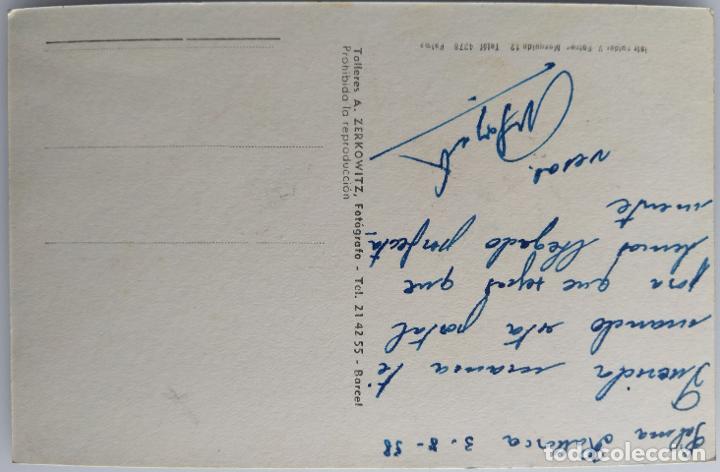 Palma Mallorca 3-8-58
Querida mama te
mando esta postal
para que sepas que
hemos llegado perfecta
mente
Talleres A. ZERKOWITZ, Fotógrafo - Tel. 21 42 55 - Barcel
Prohibida la reproducción
4278 Palma
todocoleccion.net